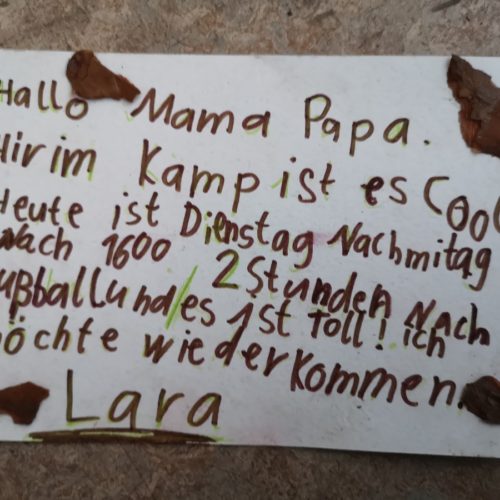 Hallo Mama Papa.
Hir im Kamp ist es Cool
Heute ist Dienstag Nachmitag
Nach 1600 2 Stunden Nach
ußball und/es ist Toll! ich
öchte wieder kommen.
Lara